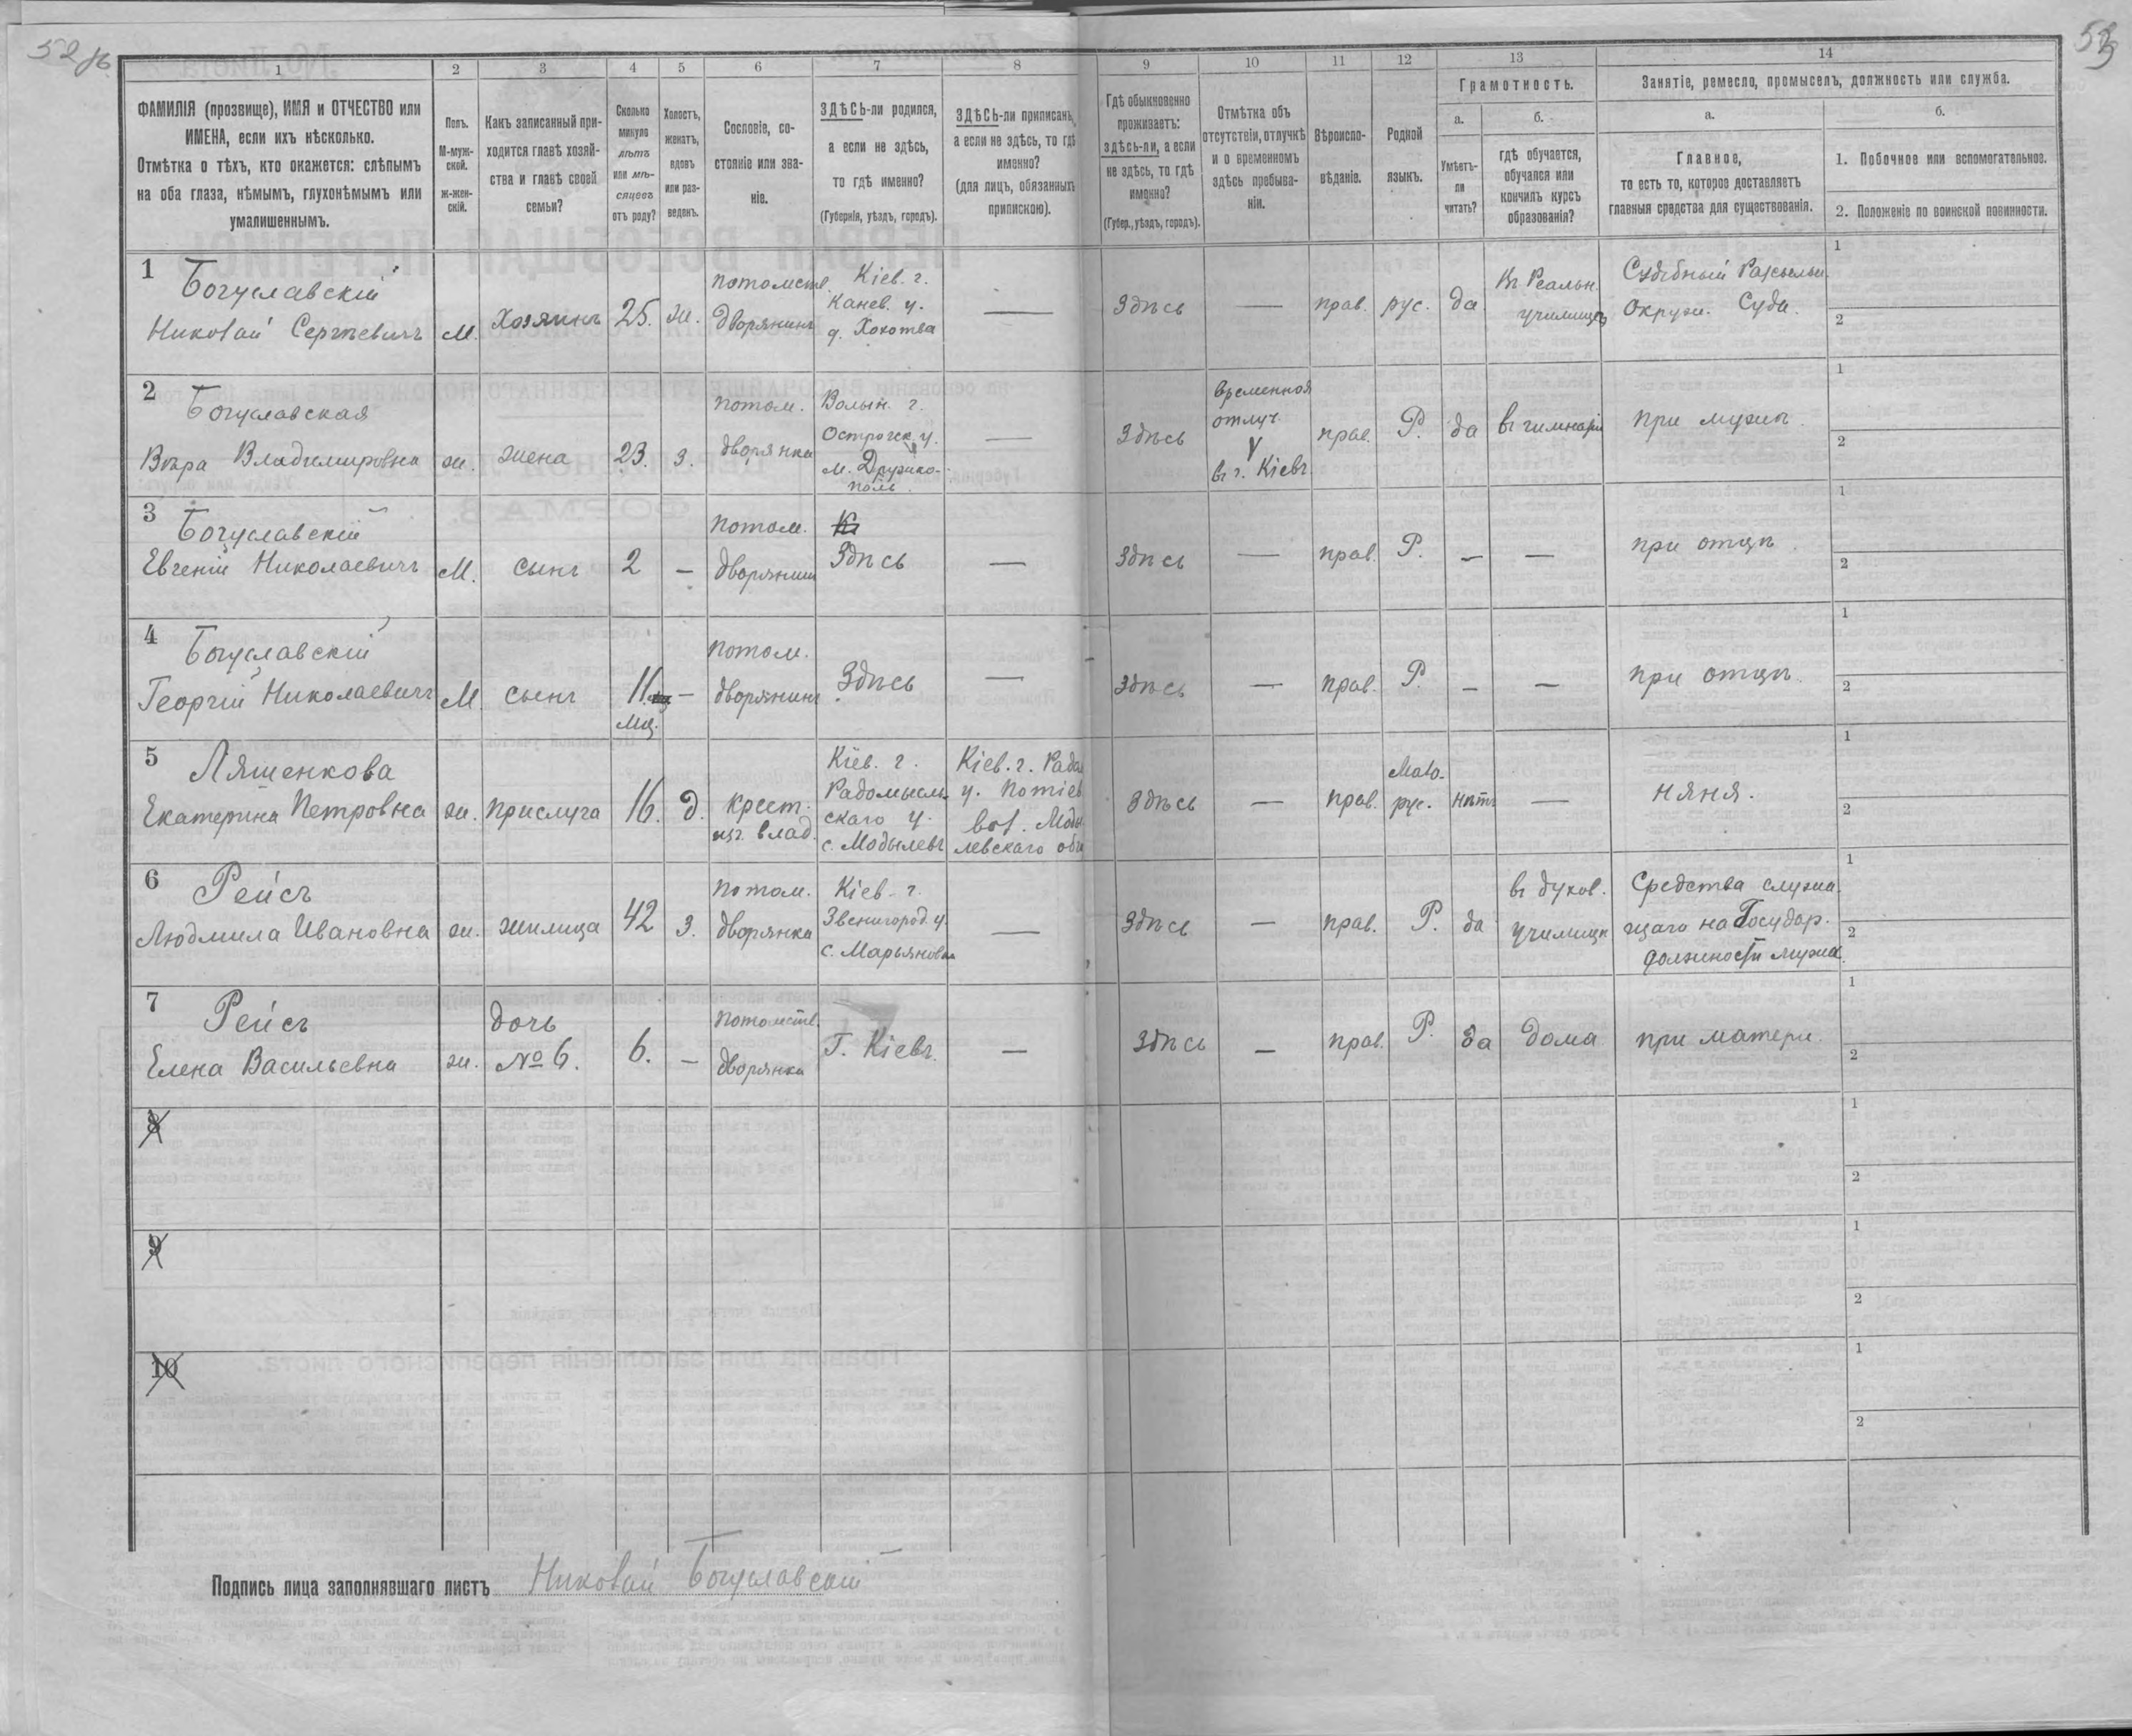 52 об.
53
1
2
3
4
5
6
7
8
9
10
11
12
13
14
ФАМИЛІЯ (прозвище), ИМЯ и ОТЧЕСТВО или
ИМЕНА, если ихъ нѣсколько.
Отмѣтка о тѣхъ, кто окажется: слѣпымъ
на оба глаза, нѣмымъ, глухонѣмымъ или
умалишеннымъ.
Полъ.
М-муж-
ской.
ж-жен-
скій.
Какъ записанный при-
ходится главѣ хозяй-
ства и главѣ своей
семьи?
Сколько
минуло
лѣтъ
или мѣ-
сяцевъ
отъ роду?
Холостъ,
женатъ,
вдовъ
или раз-
веденъ.
Сословіе, со-
стояніе или зва-
ніе.
ЗДѢСЬ-ли родился,
а если не здѣсь,
то гдѣ именно?
(Губернія, уѣздъ, городъ).
ЗДѢСЬ-ли приписанъ,
а если не здѣсь, то гдѣ
именно?
(для лицъ, обязанныхъ
припискою).
Гдѣ обыкновенно
проживаетъ:
здѣсь-ли, а если
не здѣсь, то гдѣ
именно?
(Губер., уѣздъ, городъ).
Отмѣтка объ
отсутствіи, отлучкѣ
и о временномъ
здѣсь пребыва-
ніи.
Вѣроиспо-
вѣданіе.
Родной
языкъ.
Грамотность.
а.
Умѣетъ-
ли
читать?
б.
гдѣ обучается,
обучался или
кончилъ курсъ
образованія?
Занятіе, ремесло, промыселъ, должность или служба.
а.
Главное,
то есть то, которое доставляетъ
главныя средства для существованія.
б.
1. Побочное или вспомогательное.
2. Положеніе по воинской повинности.
1
Богуславскій
Николай Сергѣевичъ
М.
Хозяинъ
25.
ж.
потомств.
дворянинъ
Кіев. г.
Канев. у.
д. Хохотва
—
Здѣсь
—
прав.
рус.
да
въ Реальн.
училищѣ
Судебный
Окружн. Суда.
1
2
2
Богуславская
Вѣра Владимировна
ж.
жена
23.
З.
потом.
дворянка
Волын. г.
Острожск. у.
м. Дружко-
поль.
—
Здѣсь
временная
отлуч.
въ г. Кіевѣ.
прав.
Р.
да
въ гимназіи
при мужѣ.
1
2
3
Богуславскій
Евгеній Николаевичъ
М.
сынъ
2
—
потом.
дворянинъ
Здѣсь
—
Здѣсь
—
прав.
Р.
—
—
при отцѣ.
1
2
4
Богуславскій
Георгій Николаевичъ
М
сынъ
11
мц.
—
потом.
дворянинъ
Здѣсь
—
Здѣсь
—
прав.
Р.
—
—
при отцѣ.
1
2
5
Ляшенкова
Екатерина Петровна
ж.
прислуга
16.
Д.
крест.
изъ влад.
Кіев. г.
Радомысль-
скаго у.
с. Модылевъ
Кіев. г. Радом
у. Потіев
вол. Моды
левскаго общ
Здѣсь
—
прав.
Мало-
рус.
нѣтъ
—
няня.
1
2
6
Рейсъ
Людмила Ивановна
ж.
жилица
42
З.
потом.
дворянка
Кіев. г.
Звенигород. у.
с. Марьяновка
—
Здѣсь
—
прав.
Р.
да
въ духов.
училищѣ
Средства служа
щаго на Государ.
должности мужа.
1
2
7
Рейсъ
Елена Васильевна
ж.
дочь
№ 6.
6.
—
Потомств.
дворянка
Г. Кіевъ.
—
Здѣсь
—
прав.
Р.
да
дома
при матери.
1
2
8
1
2
9
1
2
10
1
2
Подпись лица заполнявшаго листъ Николай Богуславскій